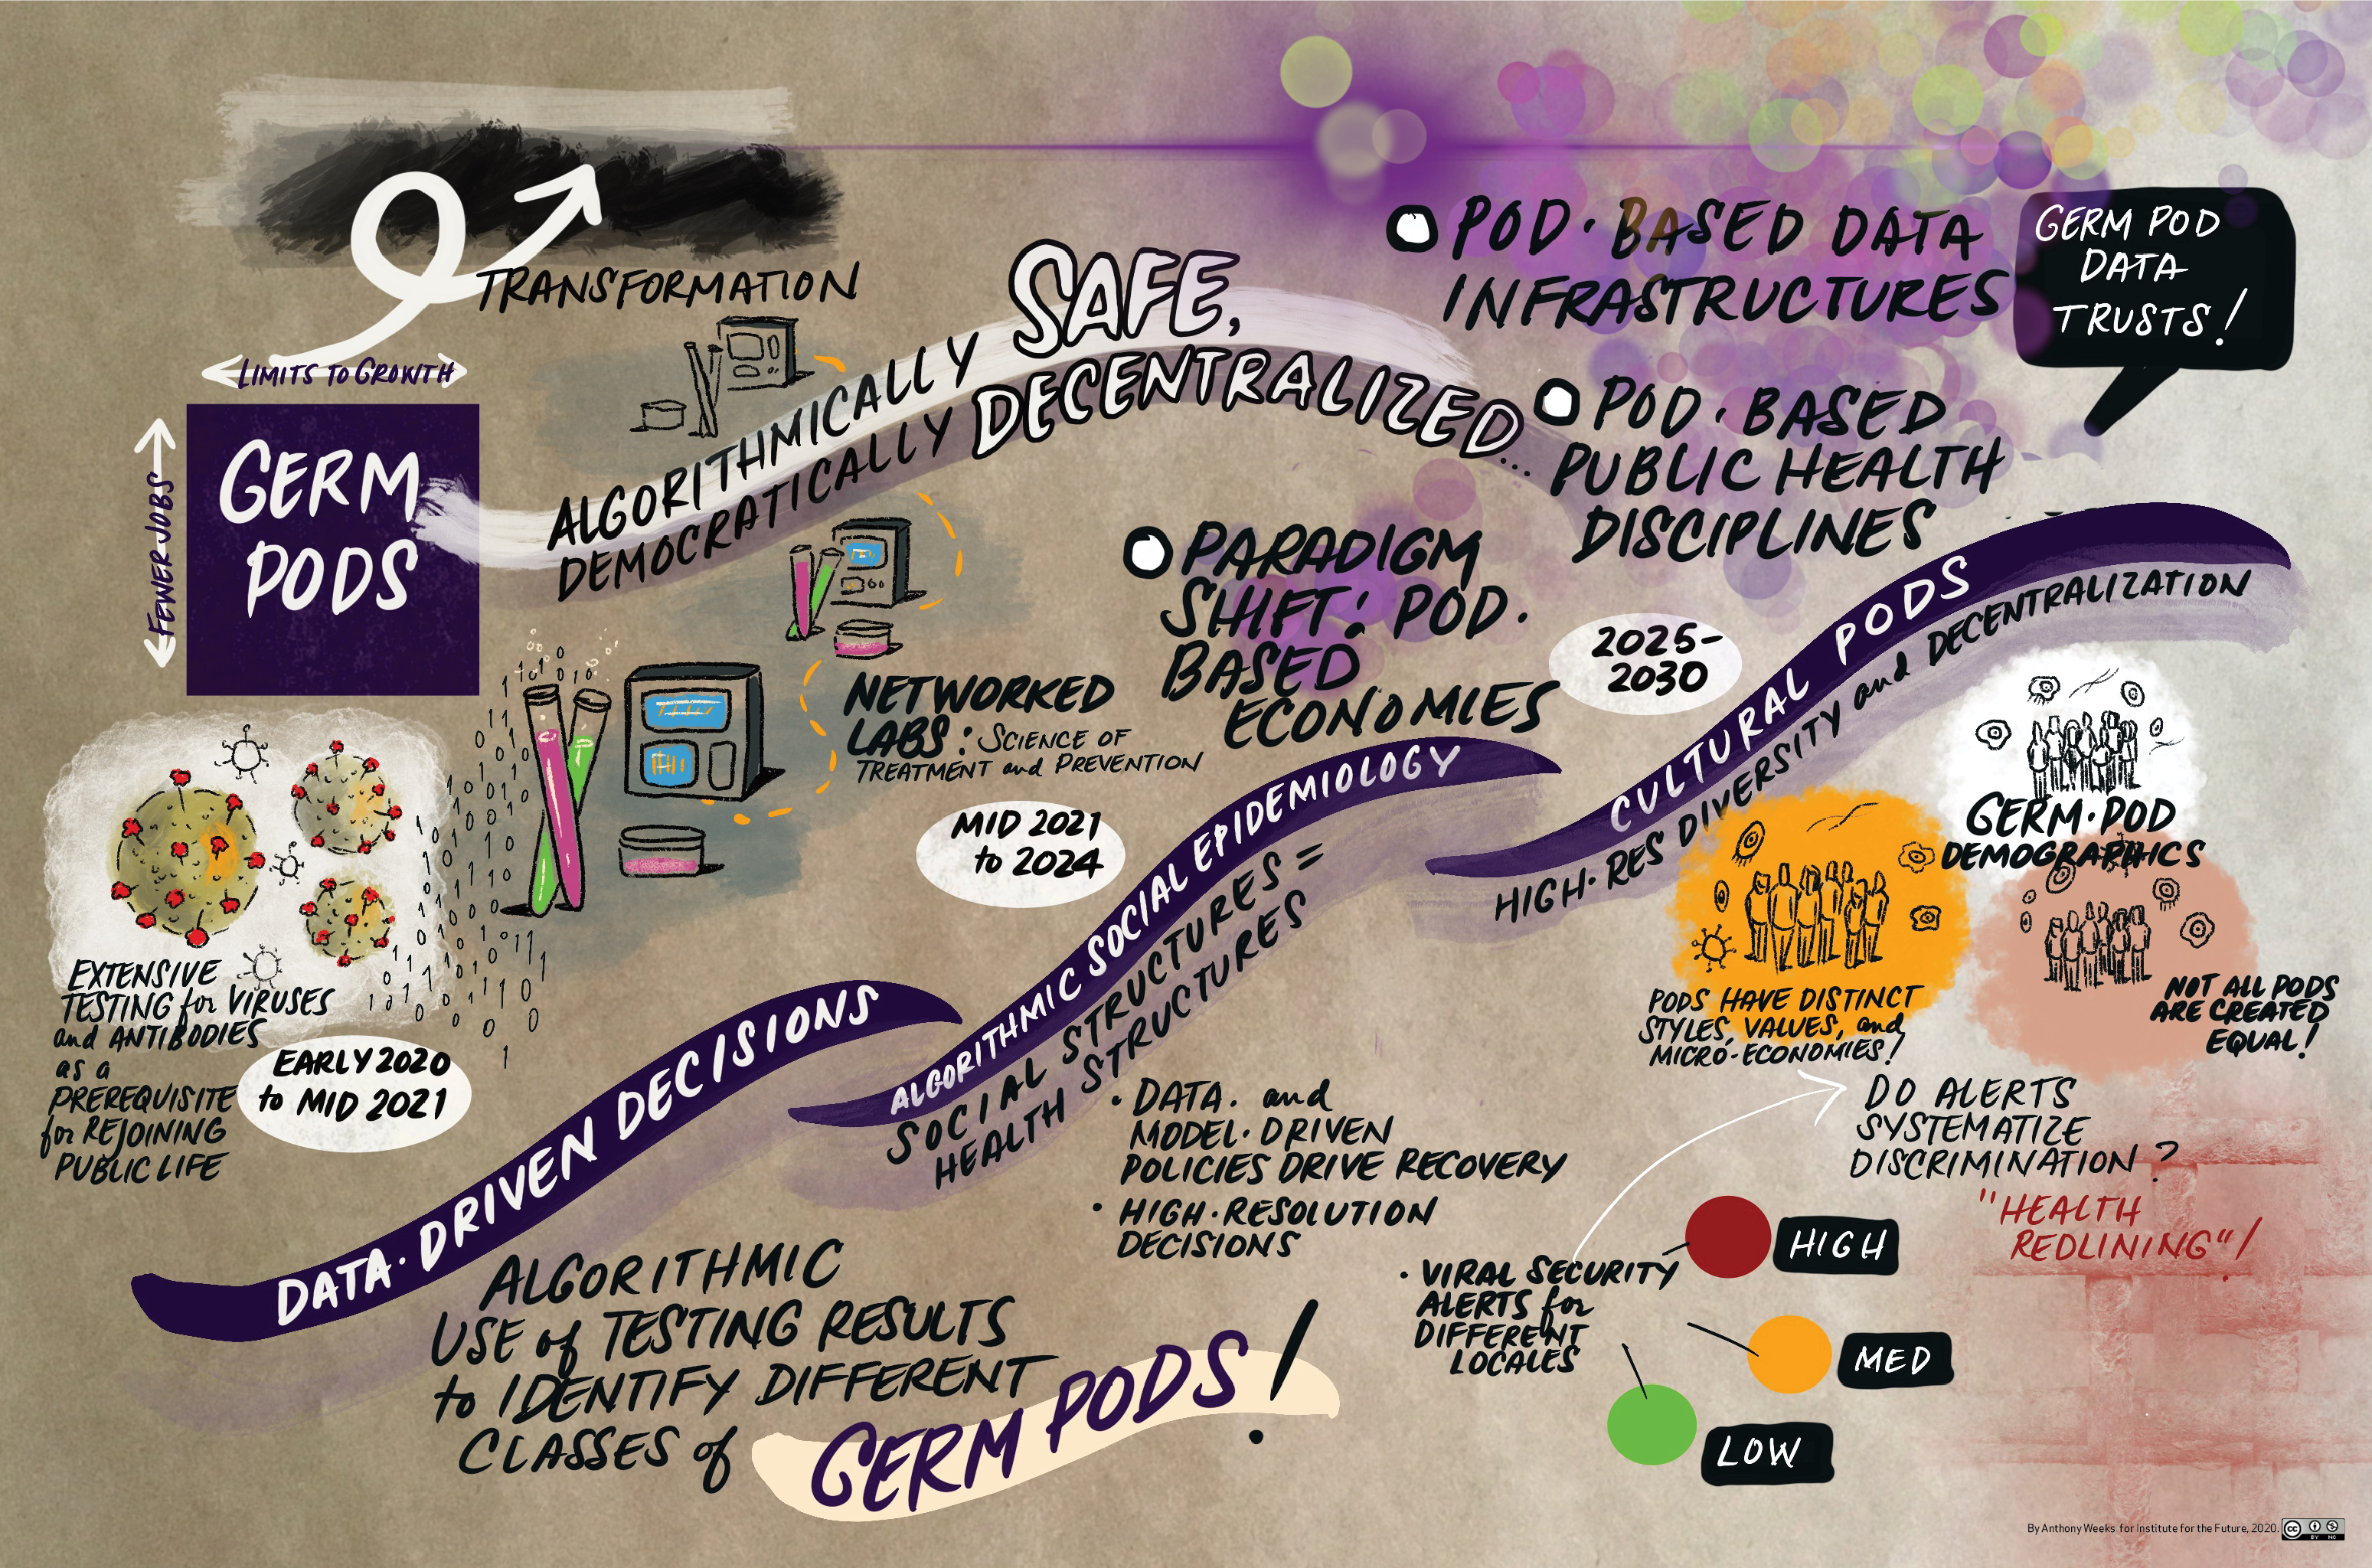 TRANSFORMATION
LIMITS TO GROWTH
FEWER JOBS
GERM
PODS
ALGORITHMICALLY SAFE,
DEMOCRATICALLY DECENTRALIZED...
POD·BASED DATA
INFRASTRUCTURES
GERM POD
DATA
TRUSTS!
POD·BASED
PUBLIC HEALTH
DISCIPLINES
PARADIGM
SHIFT: POD·
BASED
ECONOMIES
NETWORKED
LABS: SCIENCE OF
TREATMENT and PREVENTION
EXTENSIVE
TESTING for VIRUSES
and ANTIBODIES
as a
PREREQUISITE
for REJOINING
PUBLIC LIFE
EARLY 2020
to MID 2021
DATA·DRIVEN DECISIONS
ALGORITHMIC
USE of TESTING RESULTS
to IDENTIFY DIFFERENT
CLASSES of
GERM PODS!
MID 2021
to 2024
ALGORITHMIC SOCIAL EPIDEMIOLOGY
SOCIAL STRUCTURES =
HEALTH STRUCTURES
· DATA· and
MODEL·DRIVEN
POLICIES DRIVE RECOVERY
· HIGH·RESOLUTION
DECISIONS
· VIRAL SECURITY
ALERTS for
DIFFERENT
LOCALES
HIGH
MED
LOW
2025-
2030
CULTURAL PODS
HIGH·RES DIVERSITY and DECENTRALIZATION
GERM·POD
DEMOGRAPHICS
PODS HAVE DISTINCT
STYLES, VALUES, and
MICRO-ECONOMIES!
NOT ALL PODS
ARE CREATED
EQUAL!
DO ALERTS
SYSTEMATIZE
DISCRIMINATION?
"HEALTH
REDLINING"!
By Anthony Weeks for Institute for the Future, 2020.
cc
BY NC